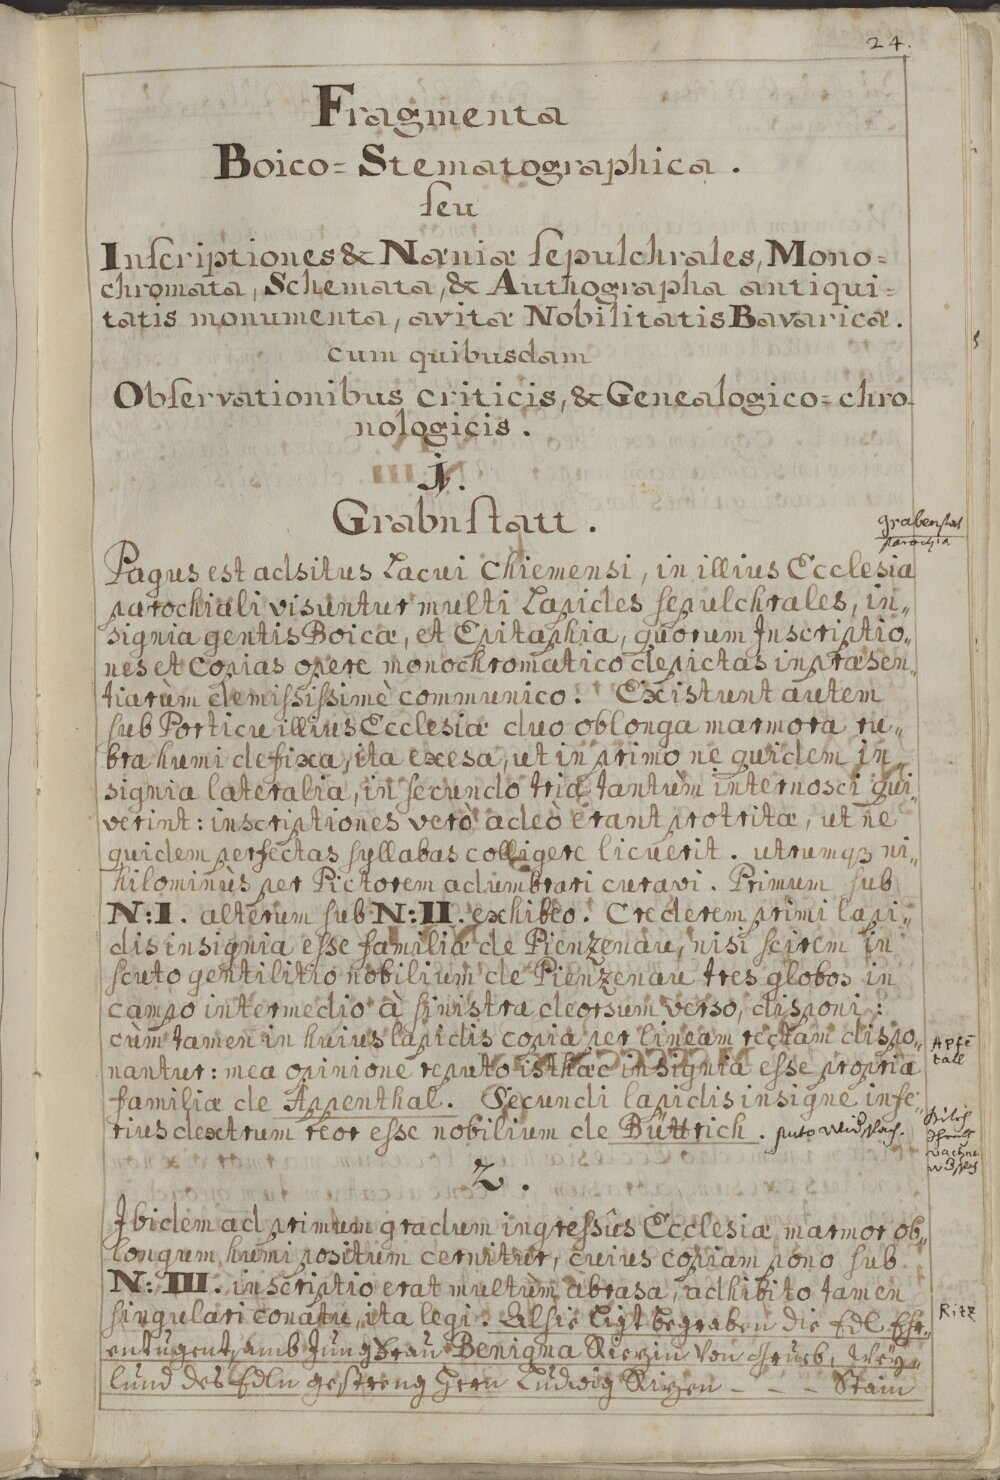 24.
Fragmenta
Boico=Stematographica.
seu
Inscriptiones & Næniæ sepulchrales, Mono=
chromata, Schemata, & Authographa antiqui=
tatis monumenta, avitæ Nobilitatis Bavaricæ.
cum quibusdam
Observationibus criticis, & Genealogico=chro
nologicis.
1.
Grabnstatt.
grabenstat
parochia
Pagus est adsitus Lacui Chiemensi, in illius Ecclesia
parochiali visuntur multi Lapides sepulchrales, in„
signia gentis Boicæ, et Epitaphia, quorum Inscriptio„
nes et Copias opere monochromatico depictas in præsen„
tiarum demississimè communico. Existunt autem
sub Porticu illius Ecclesiæ duo oblonga marmora ru„
bra humi defixa, ita exesa, ut in primo ne quidem in„
signia lateralia, in secundo tria tantùm internosci qui„
verint: inscriptiones verò adeò erant protritæ, ut ne
quidem perfectas syllabas colligere licuerit. utrumqꝫ ni„
hilominùs per Pictorem adumbrari curavi. Primum sub
N:I. alterum sub N:II. exhibeo. Crederem primi lapi„
dis insignia esse familiæ de Pienzenau, nisi scirem in
scuto gentilitio nobilium de Pienzenau tres globos in
campo intermedio à sinistra deorsum verso, disponi:
cùm tamen in huius lapidis copia per lineam rectam dispo„
nantur: mea opinione reputo isthæc insignia esse propria
familiæ de Appenthal. Secundi lapidis insigne infe„
rius dextrum reor esse nobilium de Büttrich. puto
Apfe
tall
2.
Ibidem ad primum gradum ingressûs Ecclesiæ marmor ob„
longum humi positum cernitur, cuius copiam pono sub
N: III. inscriptio erat multùm abrasa, adhibito tamen
singulari conatu, ita legi. Alhie Ligt begraben die Edl Ehr„
entugentsamb Jungfrau Benigna Riezin von Grueb, Wey„
lund des Edln gestreng Hern Ludwig Rizen - - - Stain
Ritz